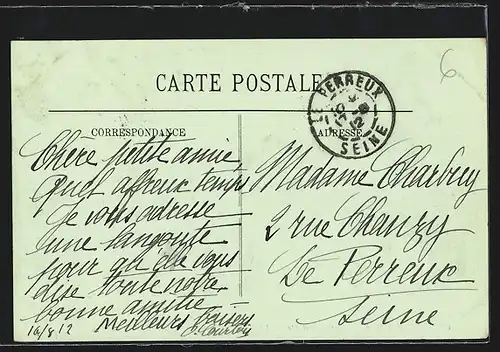 CARTE POSTALE
LE PERREUX
SEINE
6
CORRESPONDANCE
ADRESSE
Chère petite amie,
Quel affreux temps
Je vous adresse
une langouste
pour qu'elle vous
dise toute notre
bonne amitié
Meilleurs baisers
16/8/12
Madame Charbuy
2 rue Chanzy
Le Perreux
Seine